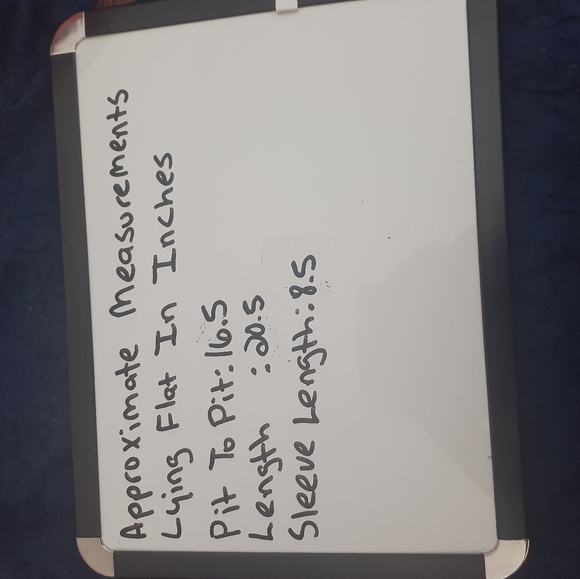 Approximate Measurements
Lying Flat In Inches
Pit To Pit:16.5
Length :20.5
Sleeve Length:8.5